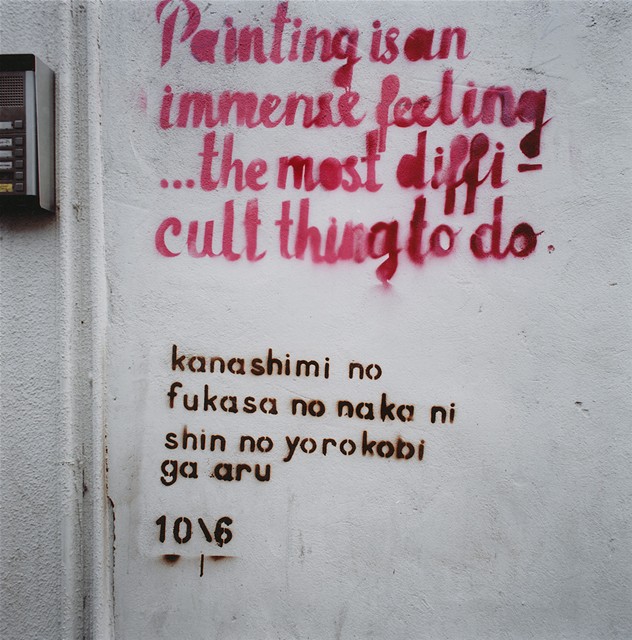 Painting is an
immense feeling
...the most diffi-
cult thing to do.
kanashimi no
fukasa no naka ni
shin no yorokobi
ga aru
10\6